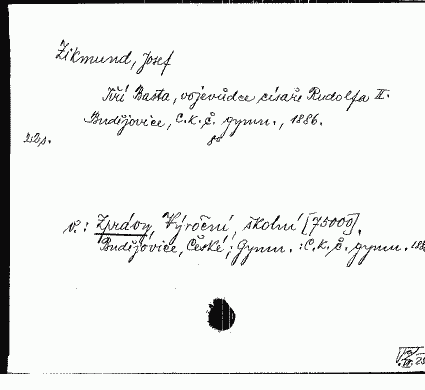 Zikmund, Josef
Jiří Basta, vojevůdce císaře Rudolfa II.
Budějovice, C.k.č. gymn., 1886.
8°
22s.
v.: Zprávy, Výroční, školní [75000].
Budějovice, České; Gymn.: C.k.č. gymn. 188